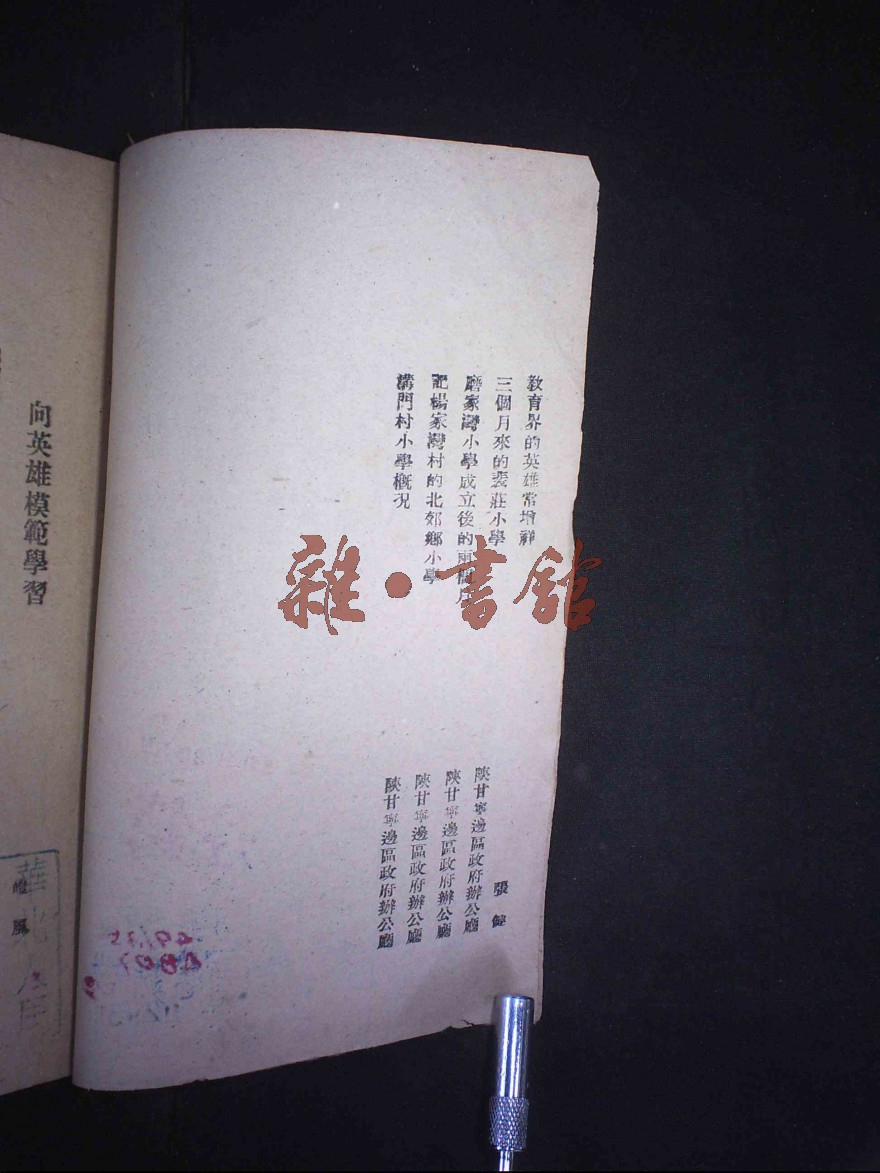 教育界的英雄常增祥
張健
三個月來的裴莊小學
陝甘寧邊區政府辦公廳
磨家灣小學成立後的兩個月
陝甘寧邊區政府辦公廳
記楊家灣村的北郊鄉小學
陝甘寧邊區政府辦公廳
溝門村小學概況
陝甘寧邊區政府辦公廳
向英雄模範學習
風
雜·書館